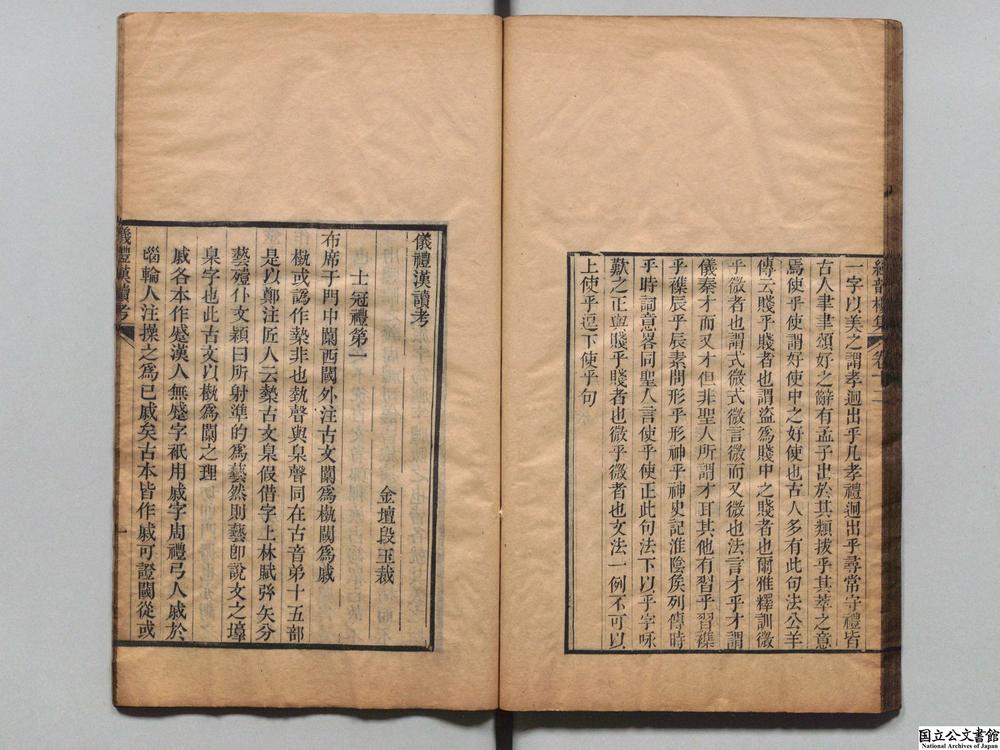 經韵樓集 卷十二
一字以美之謂孝迥出乎凡孝禮迥出乎尋常守禮皆
古人聿書頌好之辭有孟子出於其類拔乎其萃之意
焉使乎使謂好使中之好使也古人多有此句法公羊
傳云賤乎賤者也謂盜爲賤中之賤者也爾雅釋訓微
乎微者也謂式微式微言微而又微也法言才乎才謂
儀秦才而又才但非聖人所謂才耳其他有習乎習襍
乎襍辰乎辰素問形乎形神乎神史記淮陰矦列傳時
乎時詞意畧同聖人言使乎使正此句法下以乎字咏
歎之正與賤乎賤者也微乎微者也文法一例不可以
上使乎逗下使乎句
儀禮漢讀考
金壇段玉裁
士冠禮第一
布席于門中闑西閾外注古文闑爲槷閾爲蹙
槷或譌作㙯非也埶聲與臬聲同在古音弟十五部
是以鄭注匠人云槷古文臬假借字上林賦弦矢分
藝殪仆文穎曰所射準的爲藝然則藝卽說文之臬
臬字也此古文以槷爲闑之理
戚各本作蹙漢人無蹙字祇用戚字周禮弓人戚於
㓰輪人注操之爲已戚矣古本皆作戚可證閾從或
儀禮漢讀考
一
国立公文書館
National Archives of Japan